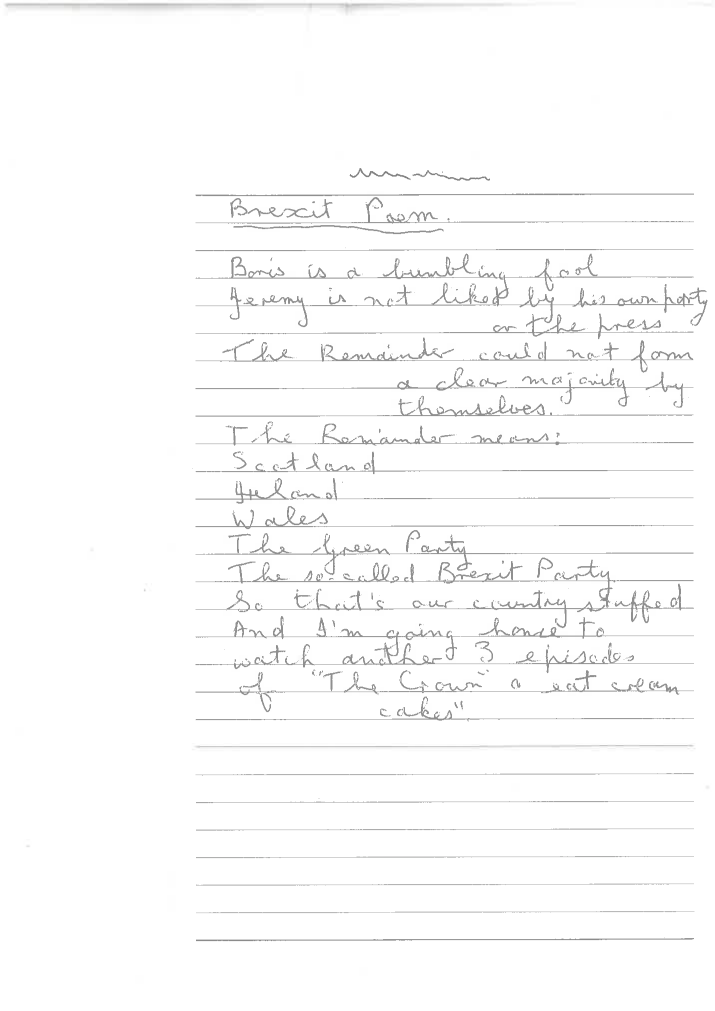 Brexit Poem.
Boris is a bumbling fool
Jeremy is not liked by his own party
or the press
The Remainder could not form
a clear majority by
themselves.
The Remainder means:
Scotland
Ireland
Wales
The Green Party
The so-called Brexit Party
So that's our country stuffed
And I'm going home to
watch another 3 episodes
of "The Crown" a eat cream
cakes".